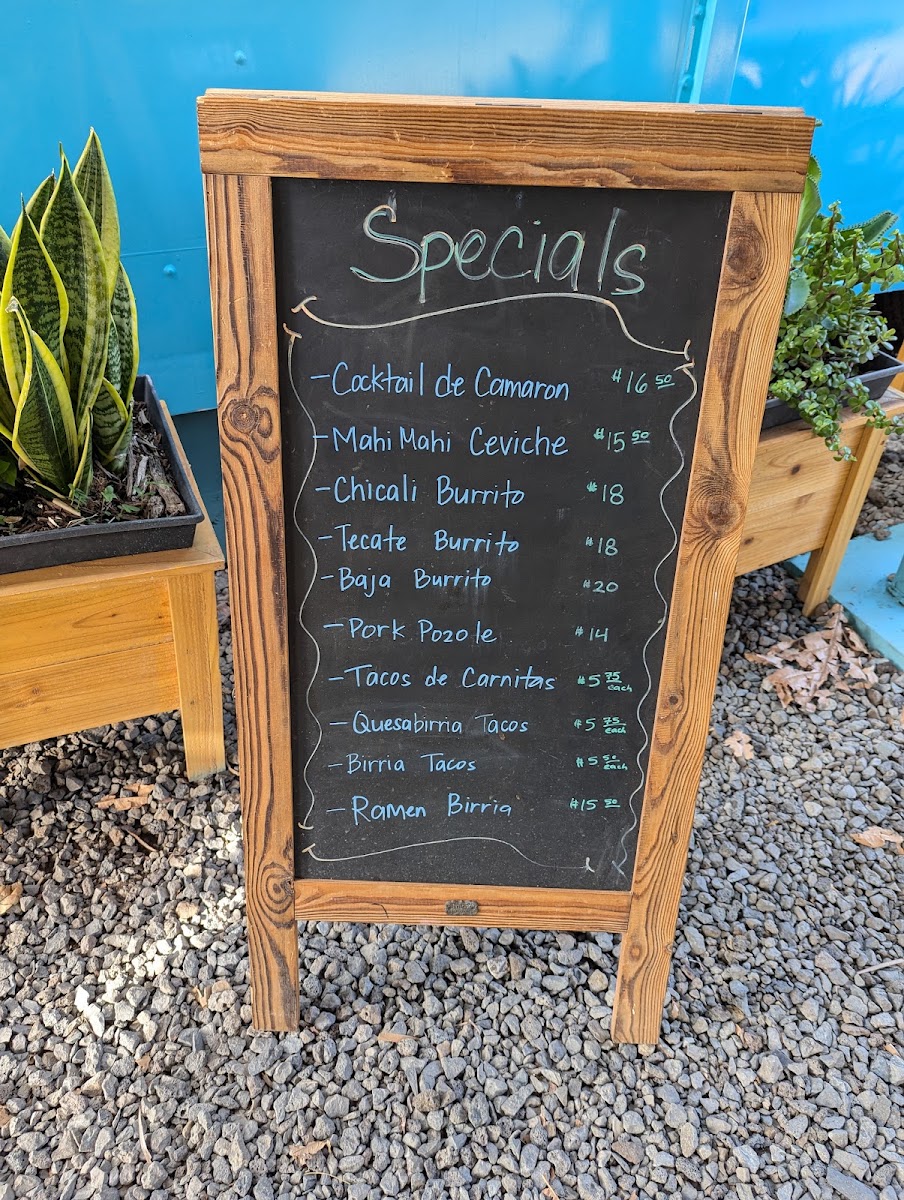 Specials
-Cocktail de Camaron $16 50
-Mahi Mahi Ceviche $15 50
-Chicali Burrito $18
-Tecate Burrito $18
-Baja Burrito $20
-Pork Pozole $14
-Tacos de Carnitas $5 75 each
-Quesabirria Tacos $5 75 each
-Birria Tacos $5 50 each
-Ramen Birria $15 50